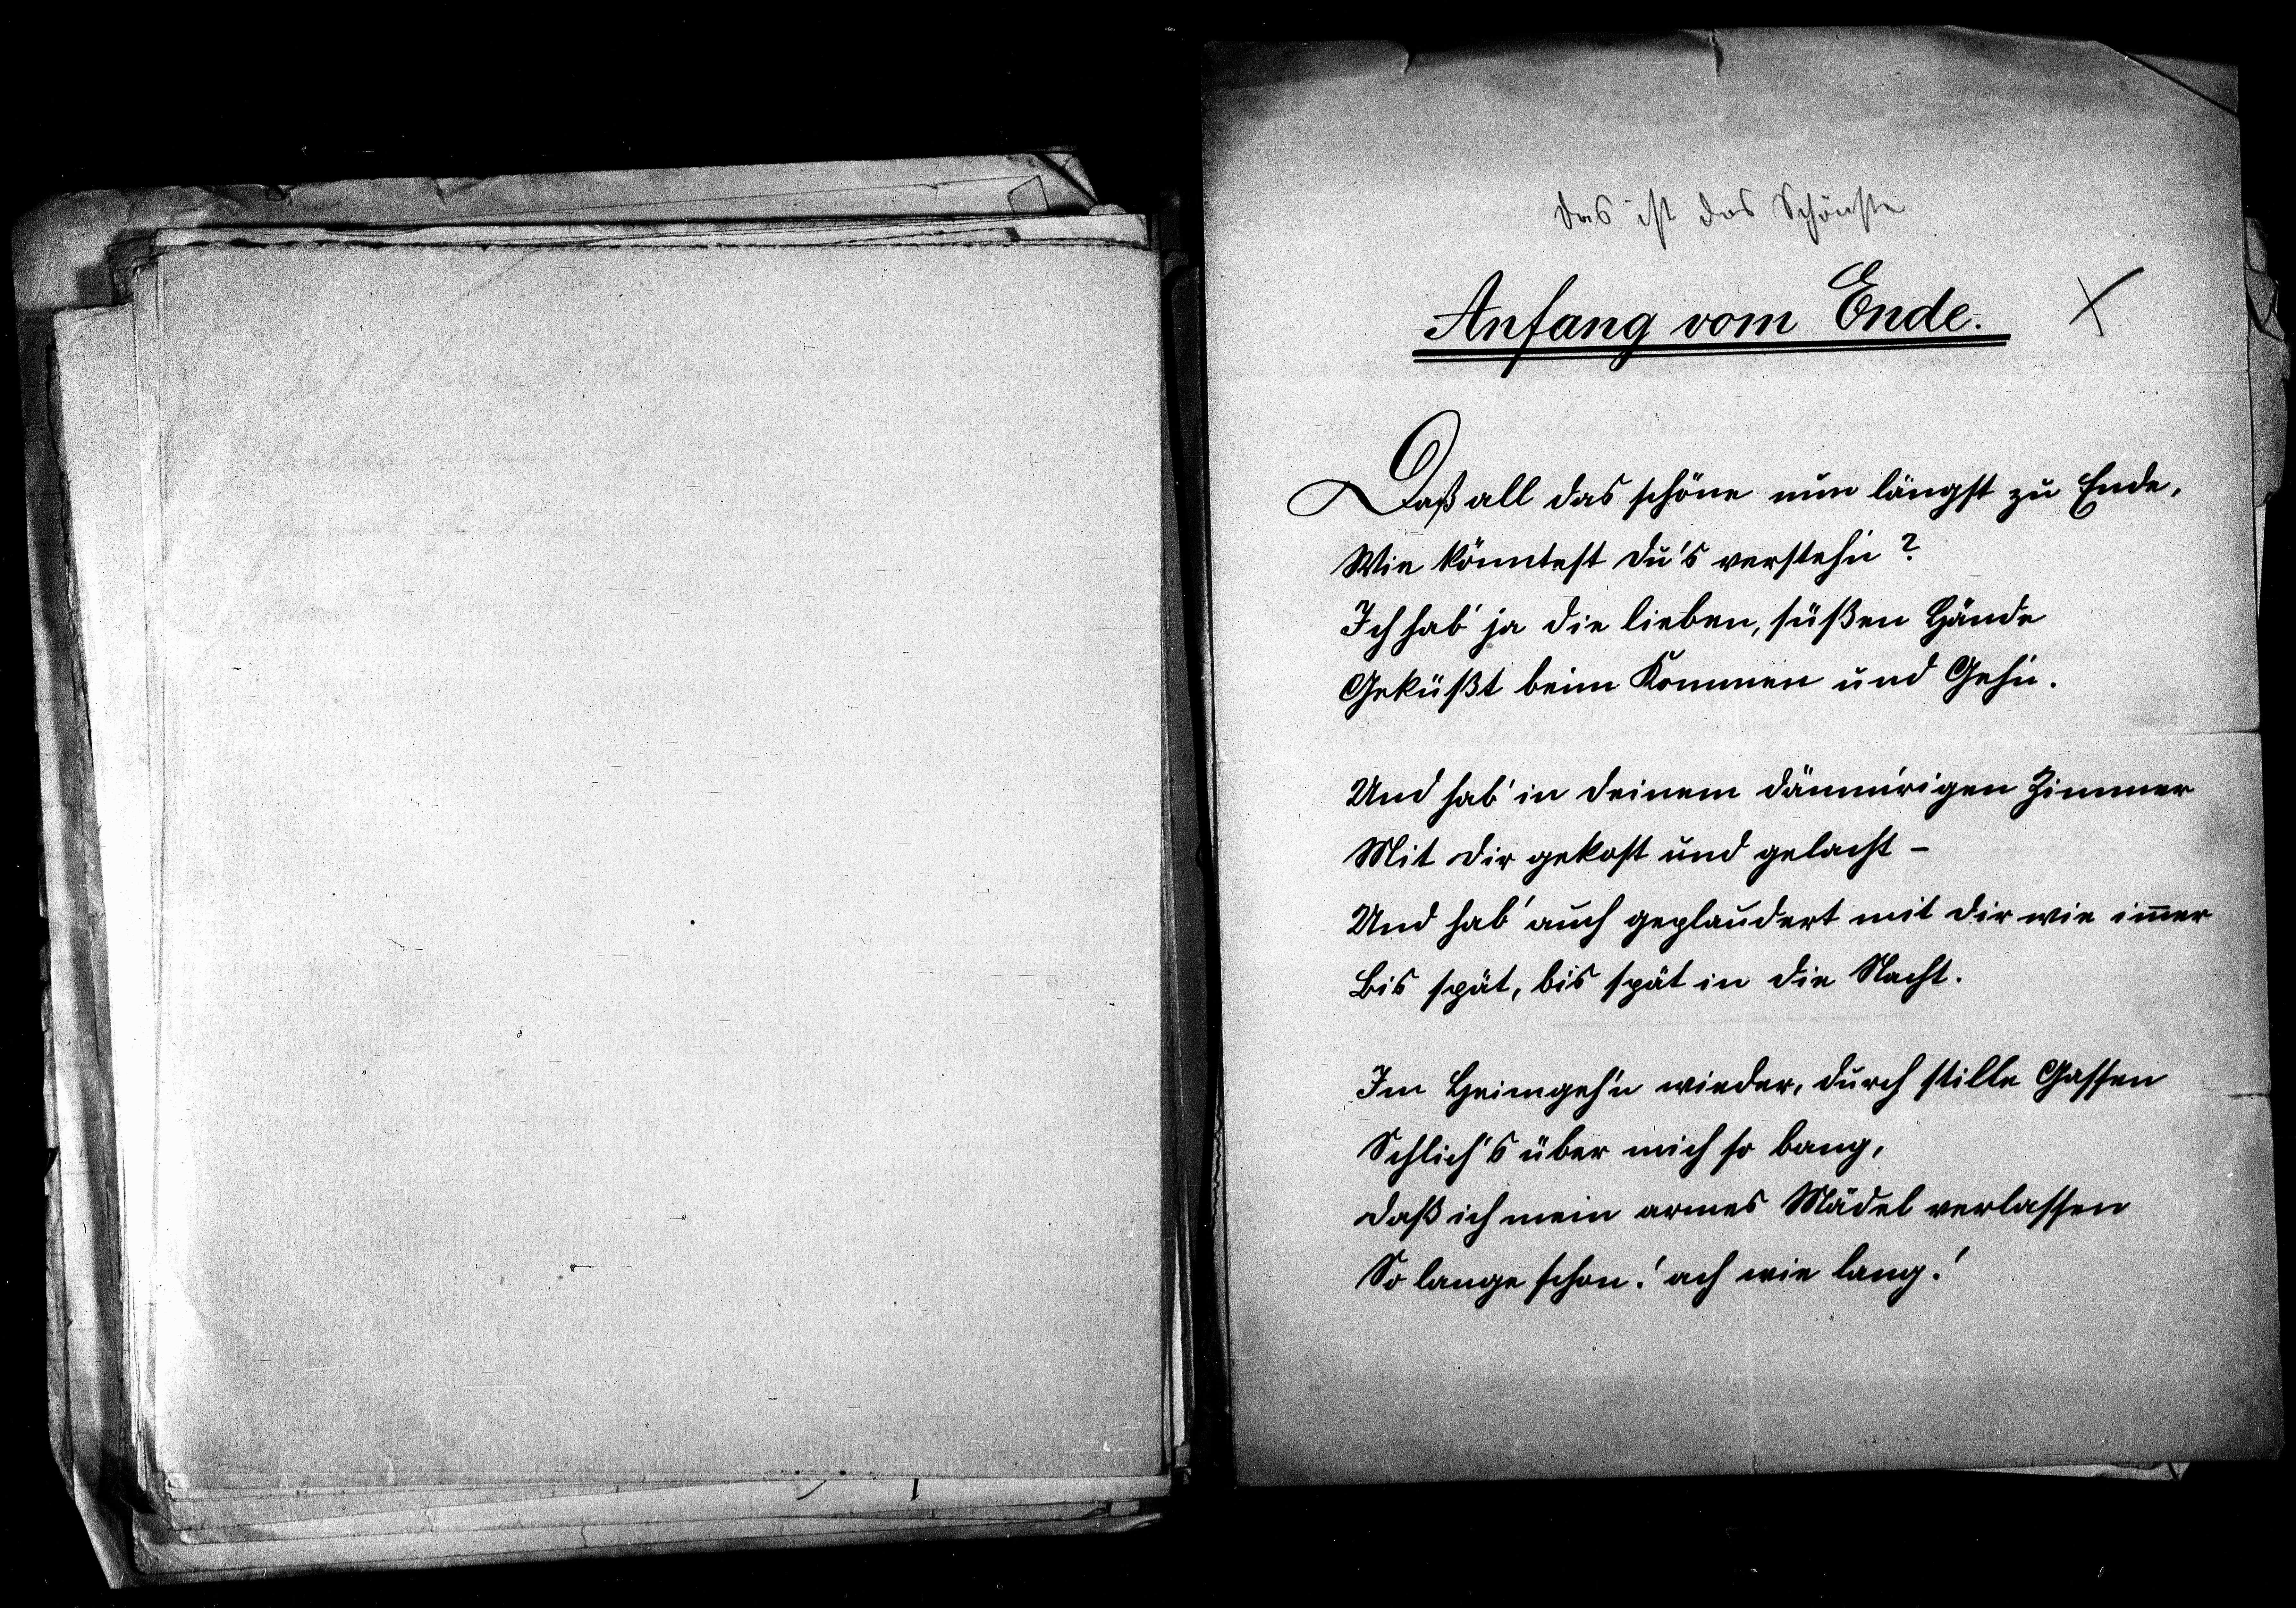 Das ist das Schönste
Anfang vom Ende.
Daß all das schöne nun längst zu Ende,
Wie könntest du's versteh'n?
Ich hab' ja die lieben, süßen Hände
Geküßt beim Kommen und Geh'n.
Und hab' in deinem dämmrigen Zimmer
Mit dir gekost und gelacht –
Und hab' auch geplaudert mit dir wie im̅er
Bis spät, bis spät in die Nacht.
Im Heimgeh'n wieder, durch stille Gassen
Schlich's über mich so bang,
Daß ich mein armes Mädel verlassen
So lange schon! ach wie lang!